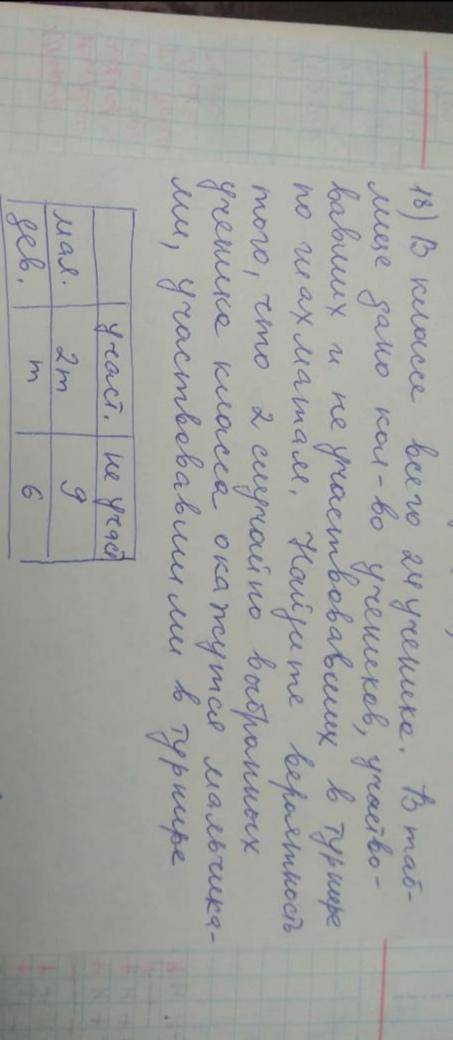 18) В классе всего 24 ученика. В таб-
лице дано кол-во учеников, участво-
вавших и не участвовавших в турнире
по шахматам. Найдите вероятность
того, что 2 случайно выбранных
ученика класса окажутся мальчика-
ми, участвовавшими в турнире
участ. не участ
мал. 2m 9
дев. m 6